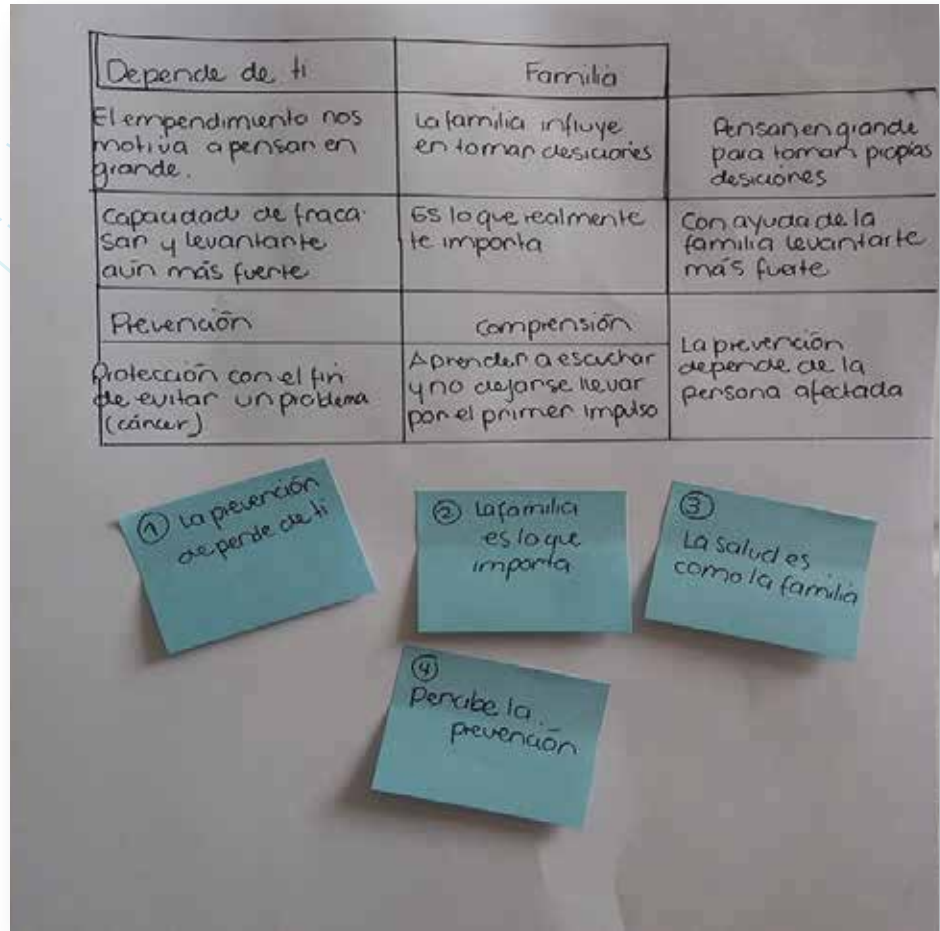 Depende de ti
Familia
El empendimiento nos
motiva a pensar en
grande.
La familia influye
en tomar desiciones
Pensar en grande
para tomar propias
desiciones
Capacidad de fraca-
sar y levantante
aún más fuerte
Es lo que realmente
te importa
Con ayuda de la
familia levantarte
más fuerte
Prevención
Comprensión
La prevención
depende de la
persona afectada
Protección con el fin
de evitar un problema
(cáncer)
Aprender a escuchar
y no dejarse llevar
por el primer impulso
① La prevención
depende de ti
② La familia
es lo que
importa
③
La salud es
como la familia
④
Percibe la
prevención